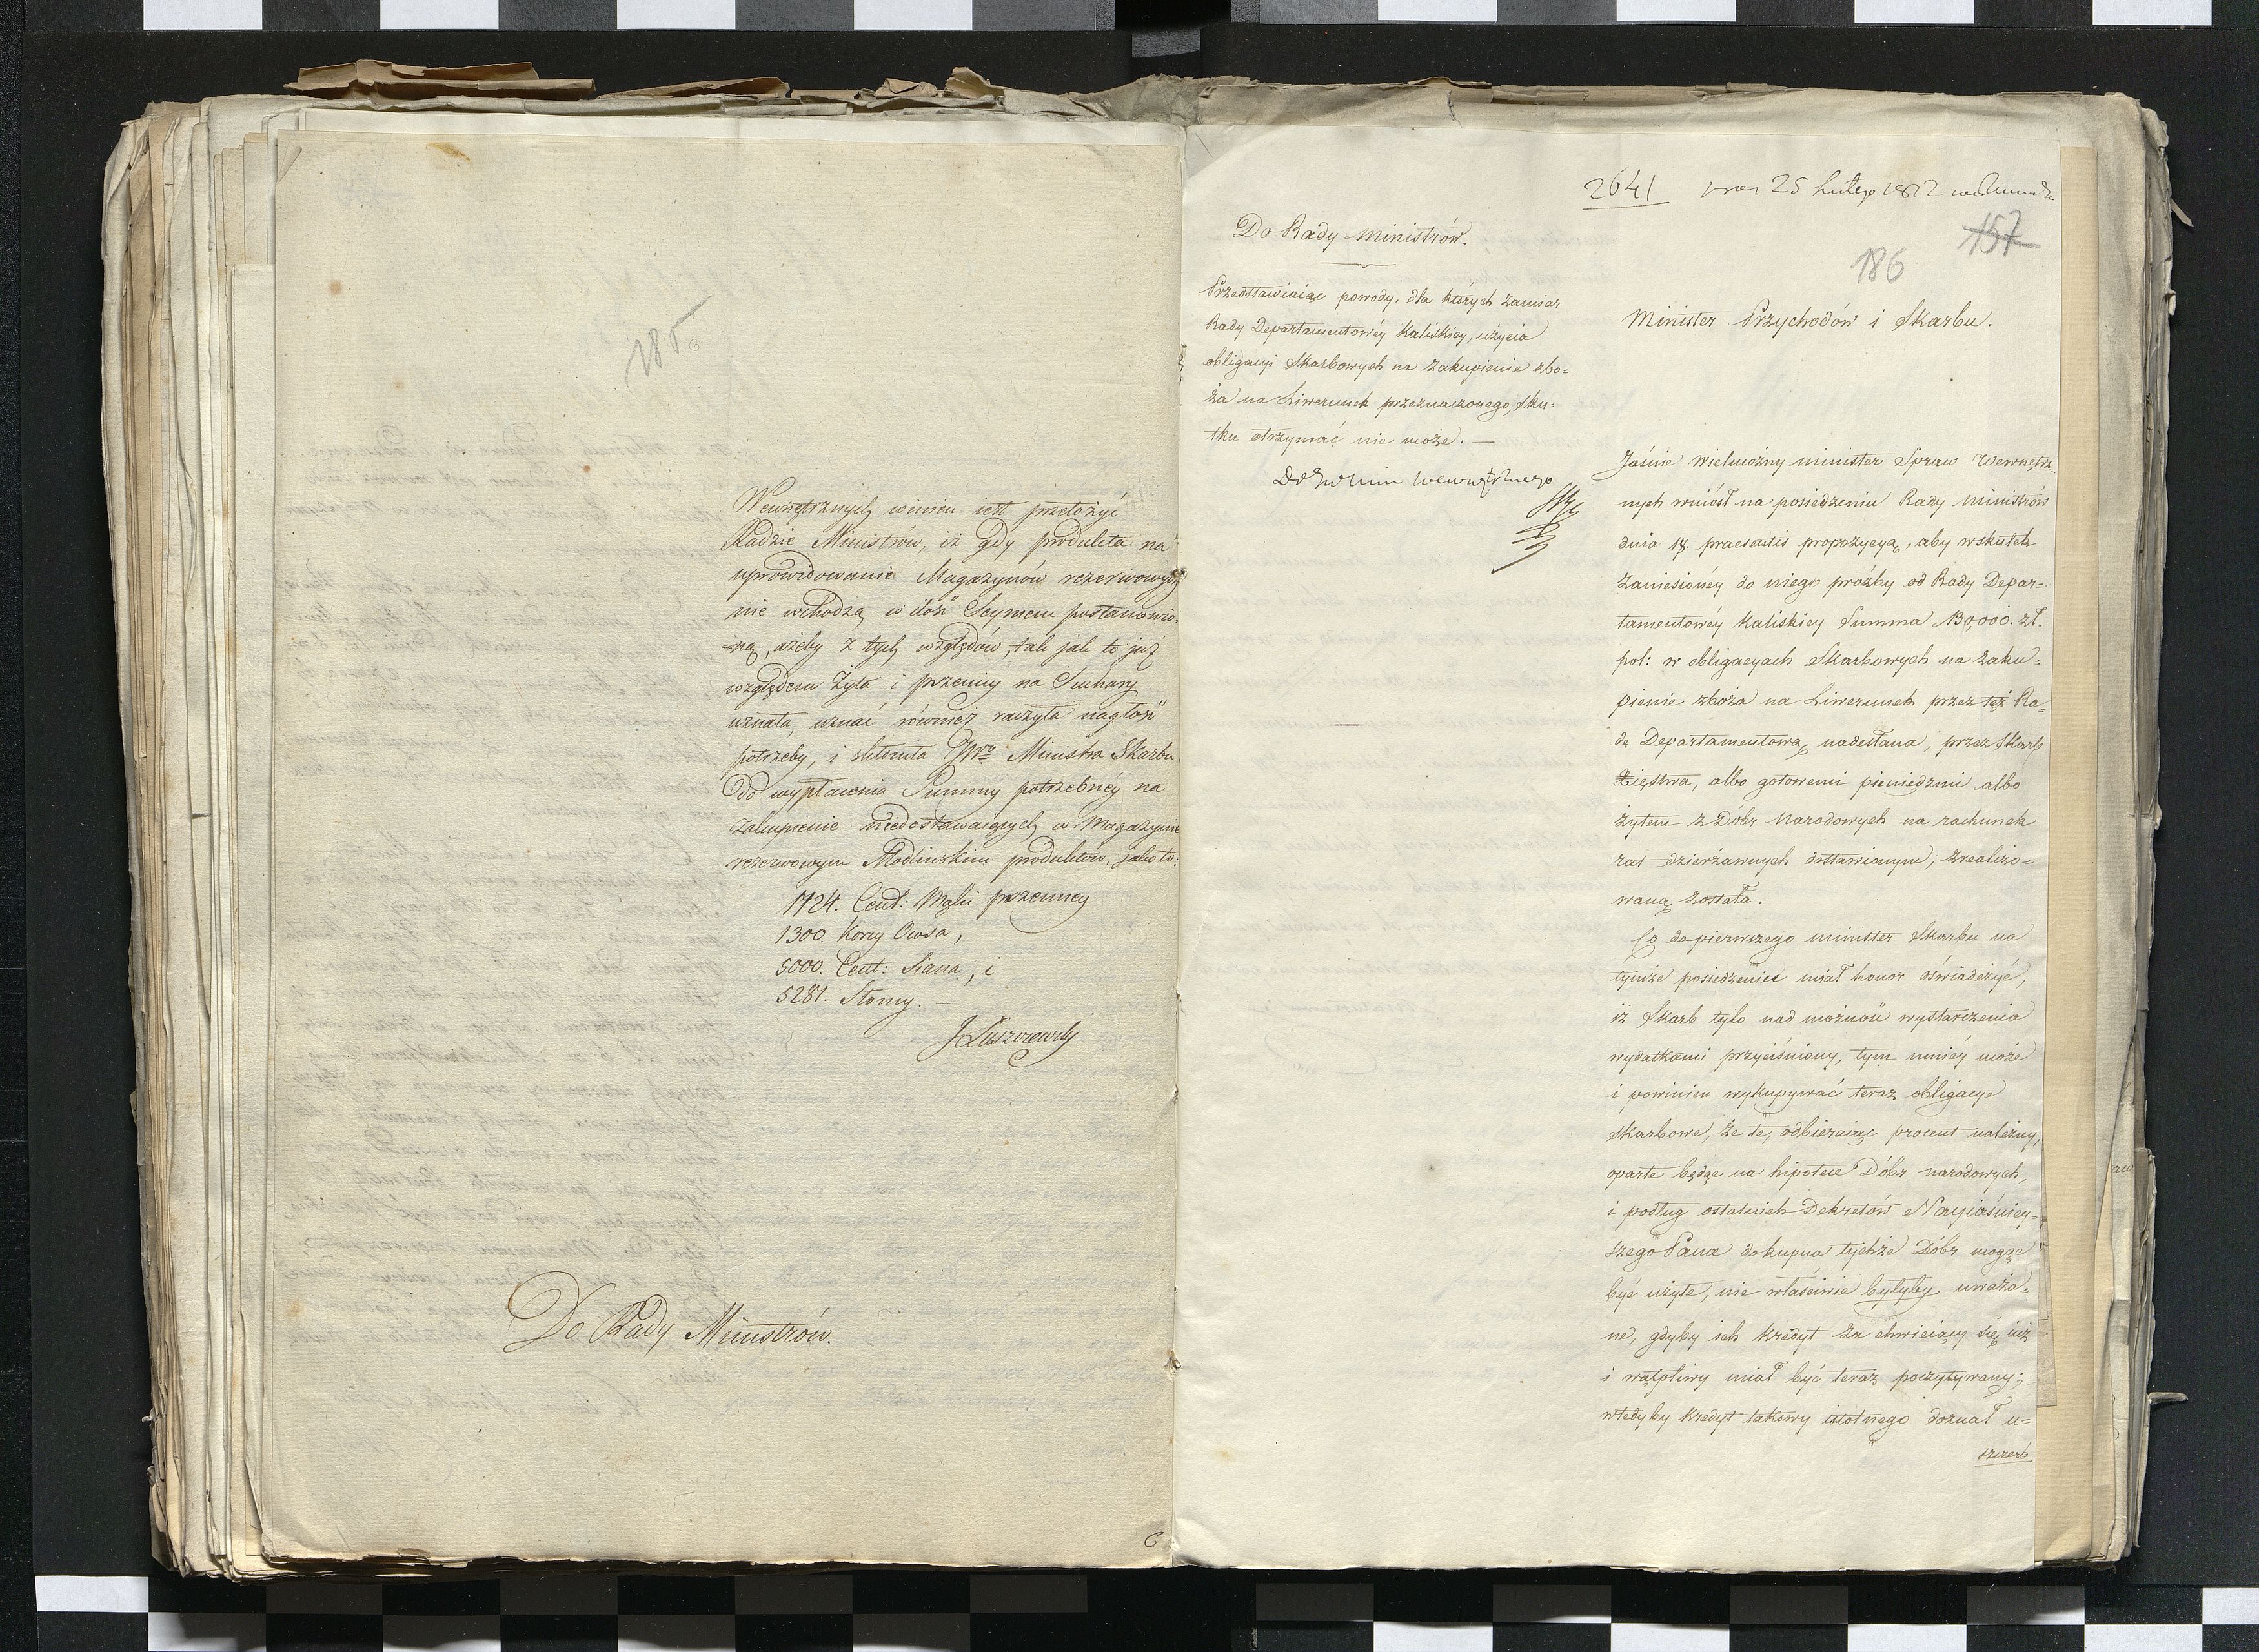 185
Wewnętrznych winien iest przełożyć
Radzie Ministrów, iż gdy produkta na
uprowidowanie Magazynów rezerwowych
nie wchodzą w ilość Seymem postanowio-
ną, ażeby z tych względów, tak jak to już
względem Żyta i pszenicy na Suchary
uznała, uznać również raczyła nagłość
potrzeby, i skłoniła JWo Ministra Skarbu
do wypłacenia Summy potrzebnéy na
zakupienie niedostawaiących w Magazynie
rezerwowym Modlinskim produktów, jako to:
1724. Cent: Mąki pszenney
1300. Korcy Owsa,
5000. Cent: Siana, i
5281. Słomy. —
J Łuszczewski
Do Rady Ministrów.
6
2641 25 Lutego 1812
157
186
Do Rady Ministrów.
Przedstawiaiąc powody, dla których zamiar
Rady Departamentowéy Kaliskiey, użycia
obligacyi Skarbowych na zakupienie zbo=
ża na Liwerunek przeznaczonego, sku=
tku otrzymać nie może. —
Minister Przychodów i Skarbu.
Jaśnie Wielmożny Minister Spraw Wewnętrz-
nych wniósł na posiedzeniu Rady Ministrów
dnia 17. praesentis propozycyą, aby wskutek
zaniesionéy do niego próźby od Rady Depar=
tamentowéy Kaliskiey Summa 130,000. zł.
pol: w obligacyach Skarbowych na zaku=
pienie zboża na Liwerunek przez też Ra=
dę Departamentową nadesłana, przez Skarb
Xięstwa, albo gotowemi pieniędzmi albo
żytem z Dóbr Narodowych na rachunek
rat dzierżawnych dostawionym, zrealizo=
waną została.
Co do pierwszego Minister Skarbu na
tymże posiedzeniu miał honor oświadczyć,
iż Skarb tylo nad możność wystarczenia
wydatkami przyciśniony, tym mniéy może
i powinien wykupywać teraz obligacye
Skarbowe, że te, odbieraiąc procent należny,
oparte będąc na hipotece Dóbr narodowych,
i podług ostatnich Dekretów Nayiaśniey=
szego Pana do kupna tychże Dóbr mogąc
być użyte, nie właściwie byłyby uważa=
ne, gdyby ich kredyt za chwieiący się iuż
i wątpliwy miał być teraz poczytywany;
wtedyby kredyt takowy istotnego doznał u=
szczerb